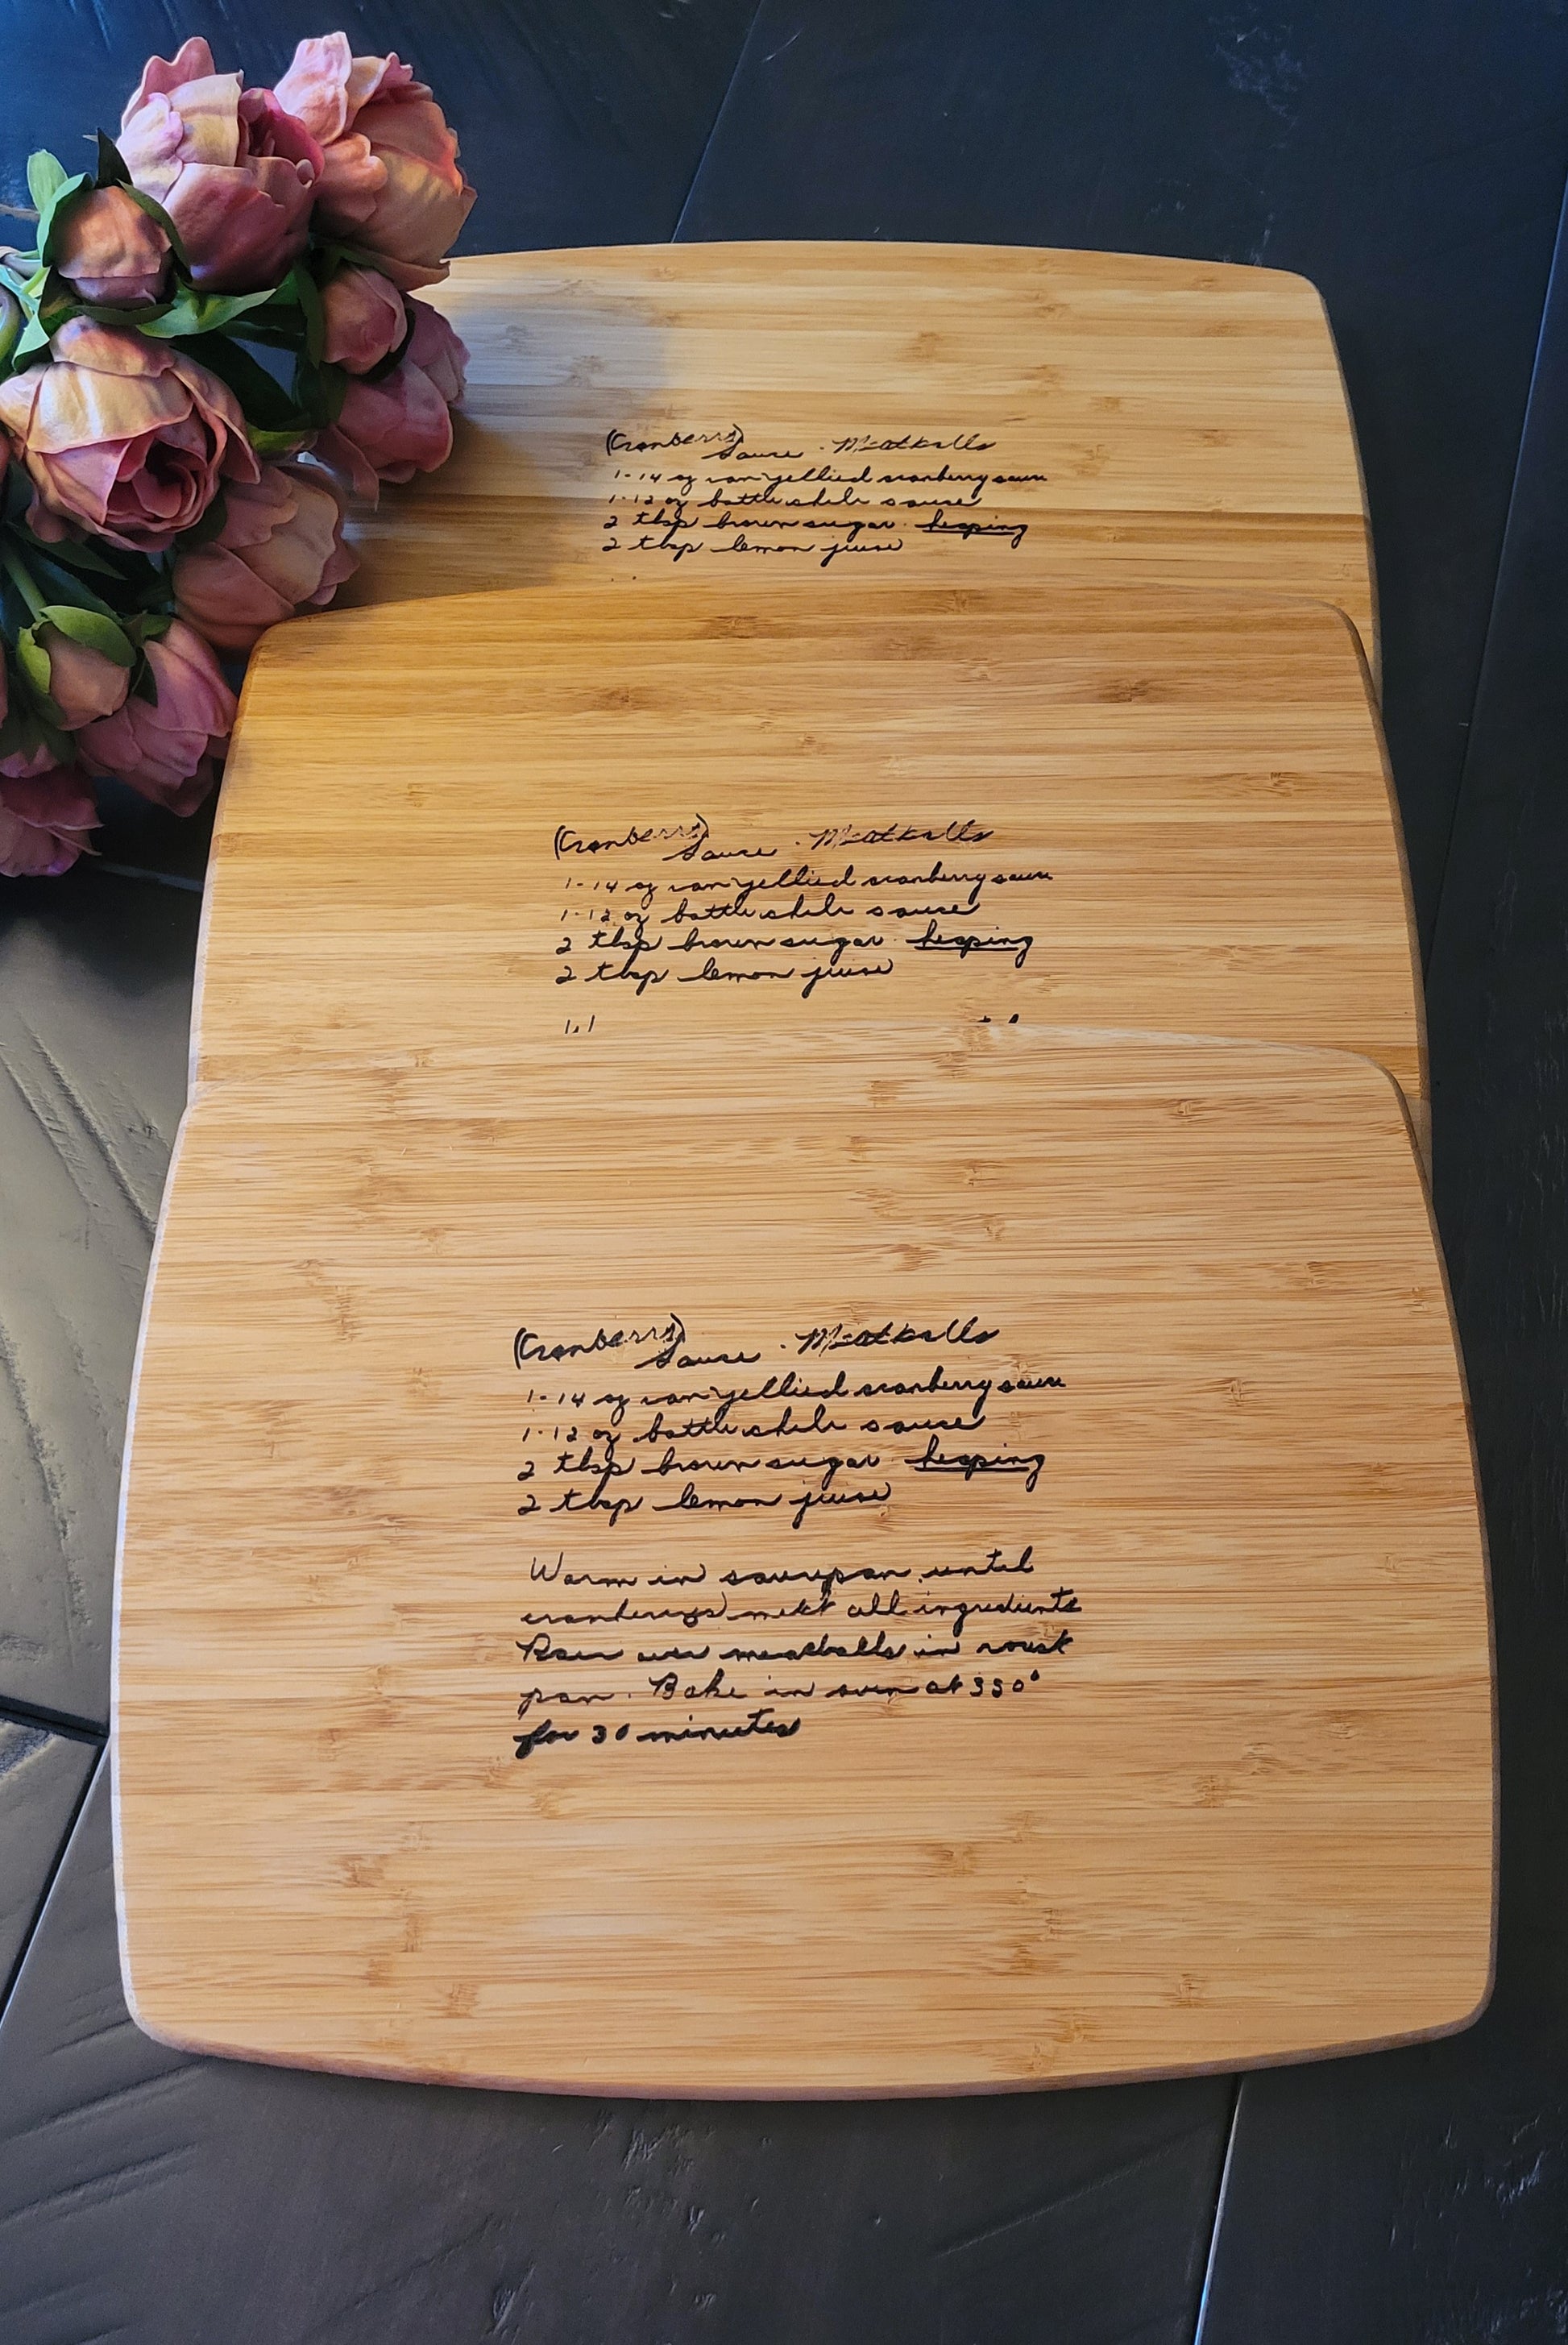 (Cranberry)
Sauce - Meatballs
1-14 oz can jellied cranberry sauce
1-12 oz bottle chili sauce
2 tbsp brown sugar heaping
2 tbsp lemon juice
(Cranberry)
Sauce - Meatballs
1-14 oz can jellied cranberry sauce
1-12 oz bottle chili sauce
2 tbsp brown sugar heaping
2 tbsp lemon juice
(Cranberry)
Sauce - Meatballs
1-14 oz can jellied cranberry sauce
1-12 oz bottle chili sauce
2 tbsp brown sugar heaping
2 tbsp lemon juice
Warm in saucepan until
melt all ingredients
Pour over meatballs in roast
pan. Bake in oven at 350°
for 30 minutes